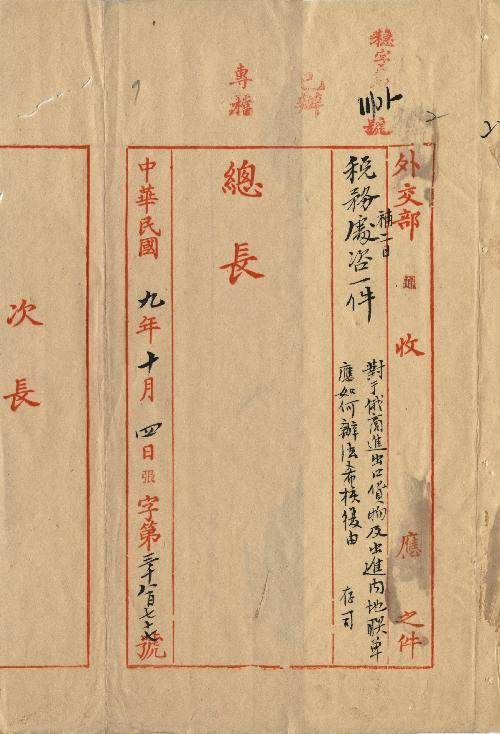 穩字
號
已辦
專檔
外交部 通 收 應 之件
補二日
稅務處咨一件
對于俄商進出口貨物及出進內地聯單
應如何辦法希核復由 存司
總長
中華民國九年十月四日張字第三千八百七十七號
次長